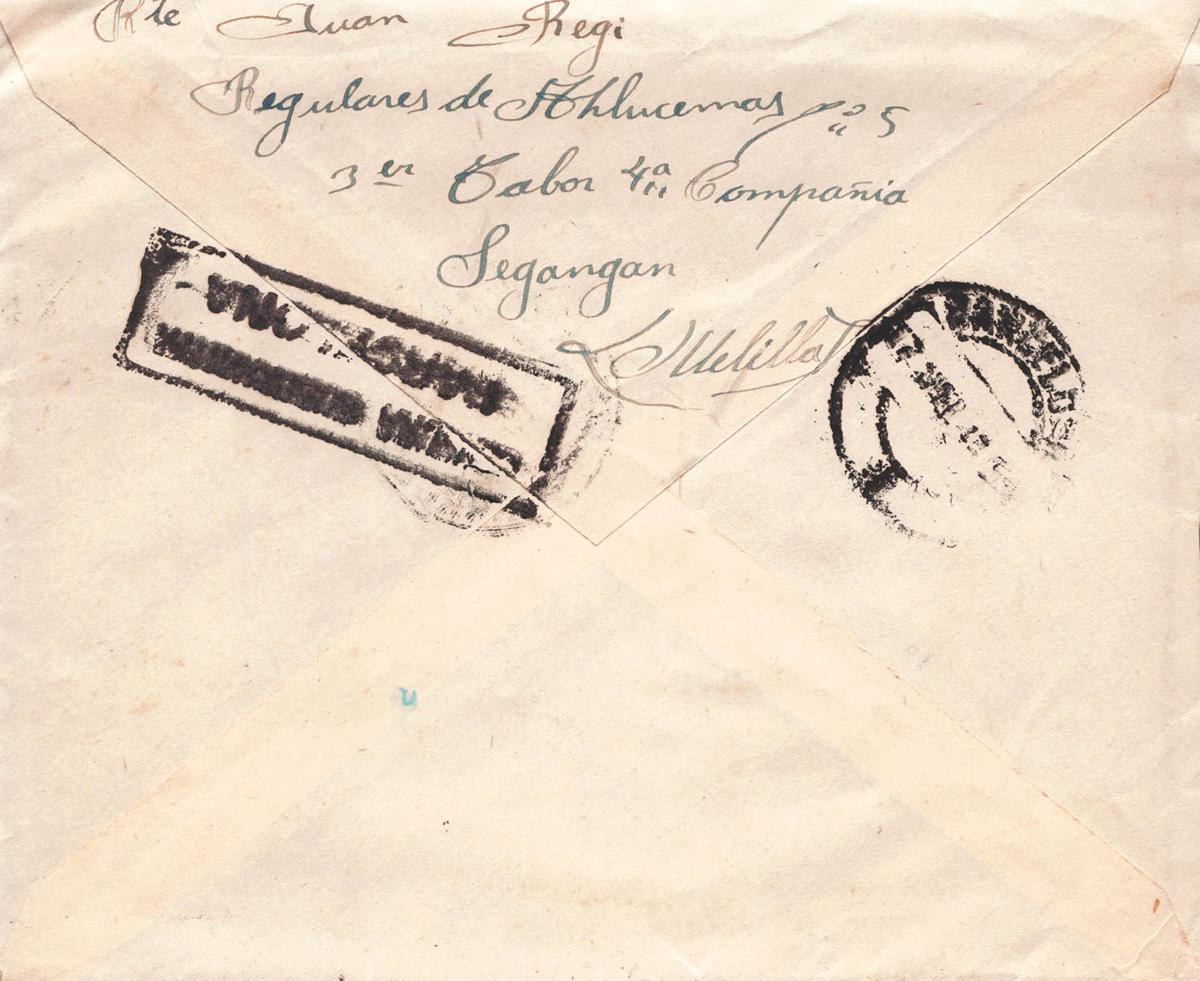 Rte Juan Regi
Regulares de Ahlucemas nº 5
3er Tabor 4ª Compañia
Segangan
Melilla